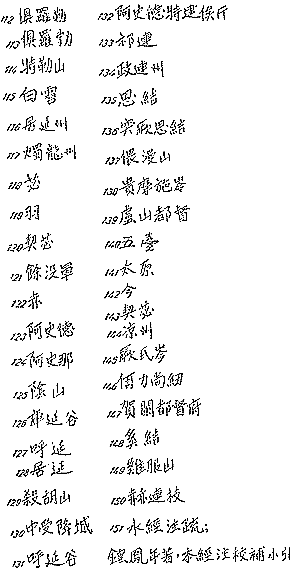 112 俱羅勃
113 俱羅勒
114 特勒山
115 白霫
116 居延州
117 燭龍州
118 苾
119 羽
120 契苾
121 餘没渾
122 赤
123 阿史德
124 阿史那
125 陰山
126 郅延谷
127 呼延
128 居延
129 殺胡山
130 中受降城
131 呼延谷
132 阿史德特建俟斤
133 祁連
134 政連州
135 思結
136 突厥思結
137 偎濕山
138 貴摩施岑
139 盧山都督
140 五臺
141 太原
142 今
143 契苾
144 凉州
145 厥氏岑
146 佰力尚紐
147 賀蘭都督府
148 奚結
149 雞服山
150 赫連枝
151 水經注疏;
鍾鳳年著,水經注校補小引